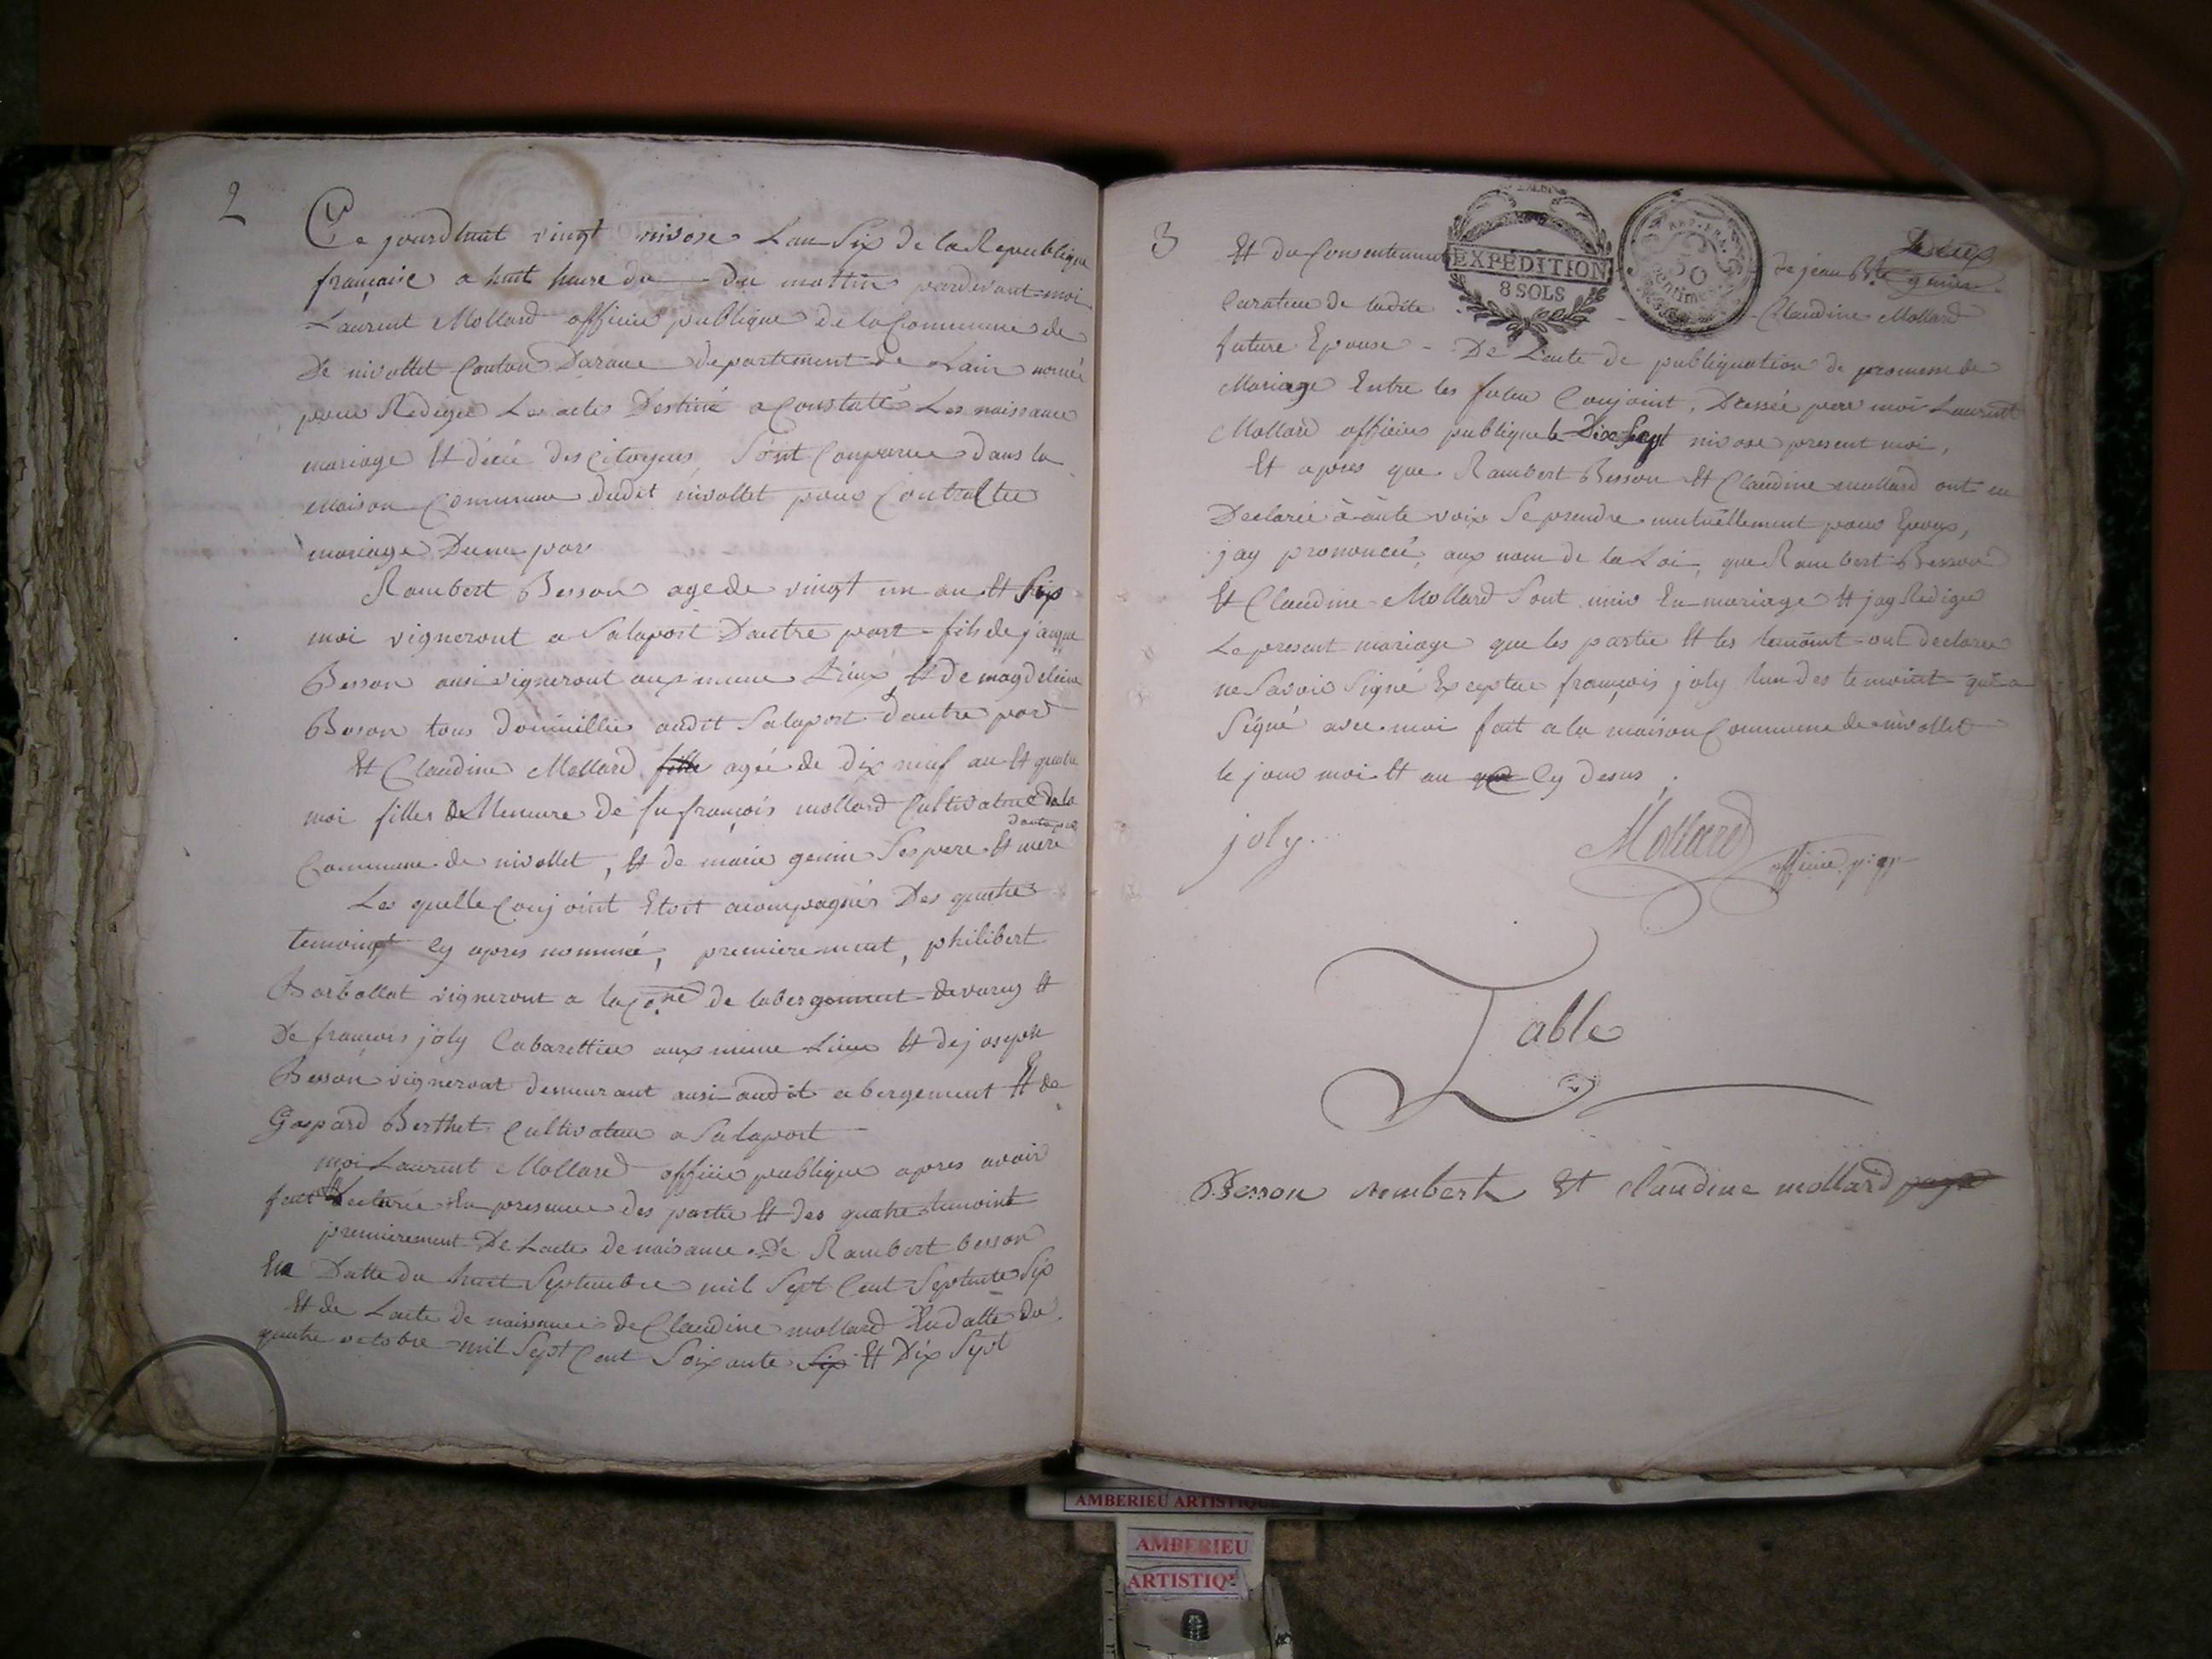 2
Ce jourdhuit vingt nivose Lan Six de la Republique
française a huit heure du du mattin pardevant moi
Laurent Mollard officié publique de la Commune de
De nivollet Canton Darane departement de Lain nomé
pour Rediger Les actes Destiné a Constatté Les naissance
mariage Et décé des Citoyens, Sont Comparue dans la
Maison Commune dudit nivollet pour Contracter
mariage Dune part
Rambert Besson age de vingt un an Et Six
moi vigneront a Salaport Dautre part fils de jacque
Besson ausi vigneront aux meme Lieux Et De magdelaine
Boson tous domicillié audit Salaport d'autre part
Et Claudine Mollard fille agée de dix neuf an Et quatre
moi filles Meneure de fu françois mollard Cultivateur de la
dautre part
Commune de nivollet, Et de marie genin Ses pere Et mere
Les quelle Conjoint Etoit acompagnés Des quatre
temoint Cy apres nommé, premierement, philibert
Barballat vigneront a la Cone de labergement de varey Et
De françois joly Cabarettier aux meme Lieux Et de joseph
Besson vigneront demeurant ausi audit abergement Et de
Gaspard Berthet Cultivateur a Salaport
moi Laurent Mollard officié publique apres avoir
fait Lecturé En presence des partie Et des quatre temoint
premierement De Lacte de naisance De Rambert besson
En Datte du huit Septembre mil Sept Cent Septente Six
Et de Lacte de naissance de Claudine mollard En datte du
quatre octobre mil Sept Cent Soixante Six Et Dix Sept
3
EXPEDITION
8 SOLS
REP. FRA.
50
Centimes
Deux
Et du Consentement de jean Bte genin
Curateur de ladite Claudine Mollard
future Epouse - De Lacte de publiquation de promesse de
Mariage Entre les futur Conjoint, Dressée par moi Laurent
Mollard officier publique le Dix Sept nivose present moi,
Et apres que Rambert Besson Et Claudine mollard ont eu
Declarée à aute voix Se prendre mutuellement pour Epoux,
jay prononcée, aux nom de la Loi, que Rambert Besson
Et Claudine Mollard Sont unis En mariage Et jay Redigée
Le present mariage que les partie Et les temoint ont declaree
ne Savoir Signé Exceptee françois joly lun des temoint qui a
Signé avec moi fait a la maison Commune de nivollet
le jour moi Et an Cy desus
joly
Mollard
officié p.que
Table
Besson rembert Et claudine mollard page
AMBERIEU ARTISTIQUE
AMBERIEU
ARTISTIQ